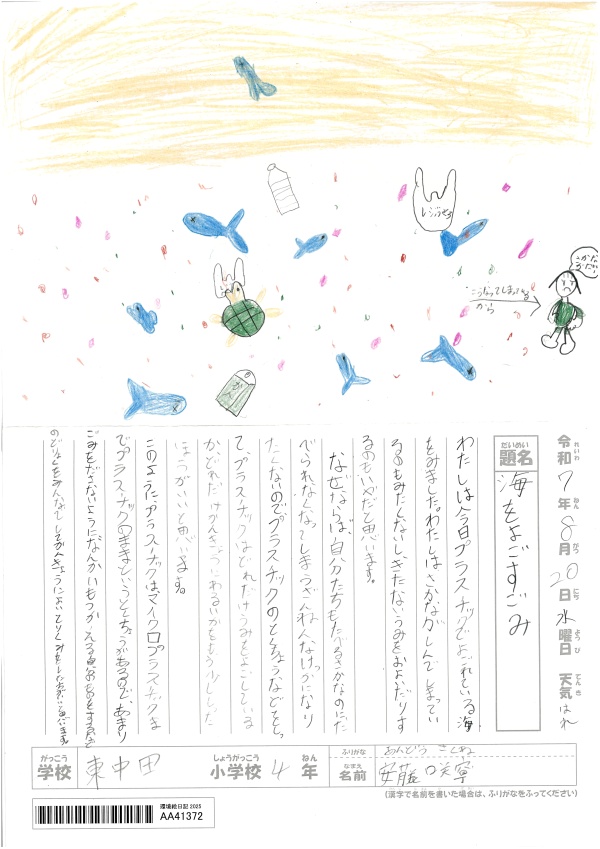 レジぶくろ
こうなってしまってるから
さかな
かん
令和7年8月20日水曜日 天気はれ
れいわ ねん がつ にち ようび てんき
だいめい
題名 海をよごすごみ
わたしは今日プラスチックでよごれている海
をみました。わたしはさかながしんでしまってい
るのもみたくないしきたないうみをおよいだりす
るのもいやだと思います。
なぜならば、自分たちもたべるさかなのにた
べられなくなってしまうざんねんなけっかになり
たくないのでプラスチックのとくちょうなどをしっ
て、プラスチックはどれだけうみをよごしている
かどれだけかんきょうにわるいかをもう少しした
ほうがいいと思います。
このようにプラスチックはマイクロプラスチックま
でプラスチックのままというとくちょうがあるので、あまり
ごみをださないようになんかいもつかえる
のどりょくをみんなでしてかんきょうによい
がっこう しょうがっこう ねん
学校 東中田 小学校 4年
ふりがな あんどう さくね
なまえ
名前 安藤咲寧
(漢字で名前を書いた場合は、ふりがなをふってください)
環境絵日記 2025
AA41372